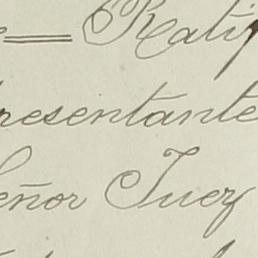 Ratif
resentante
eñor Juez